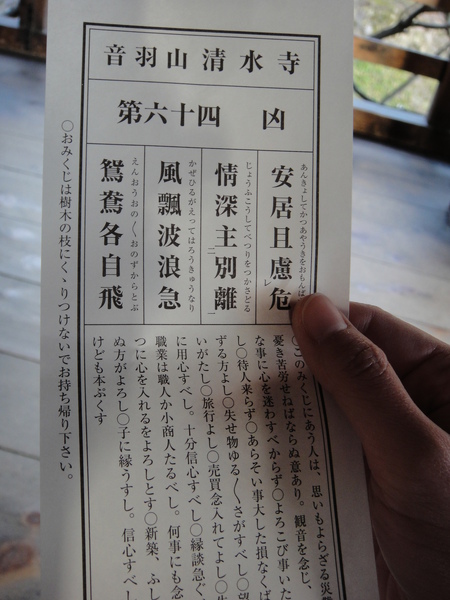 音羽山清水寺
第六十四 凶
あんきょしてかつあやうきをおもんぱ
安居且慮レ危
じょうふこうしてべつりをつかさどる
情深主二別離一
かぜひるがえってはろうきゅうなり
風飄波浪急
えんおうおの〱おのずからとぶ
鴛鴦各自飛
〇このみくじにあう人は、思いもよらざる災
憂き苦労せねばならぬ意あり。観音を念じ、
な事に心を迷わすべからず〇よろこび事いた
し〇待人来らず〇あらそい事大した損なくば
ずる方よし〇失せ物ゆる〱さがすべし〇望
いがたし〇旅行よし〇売買念入れてよし〇
に用心すべし。十分信心すべし〇縁談急ぐ
職業は職人か小商人たるべし。何事にも念
つに心を入れるをよろしとす〇新築、ふし
ぬ方がよろし〇子に縁うすし。信心すべし
けども本ぷくす
〇おみくじは樹木の枝にくゝりつけないでお持ち帰り下さい。